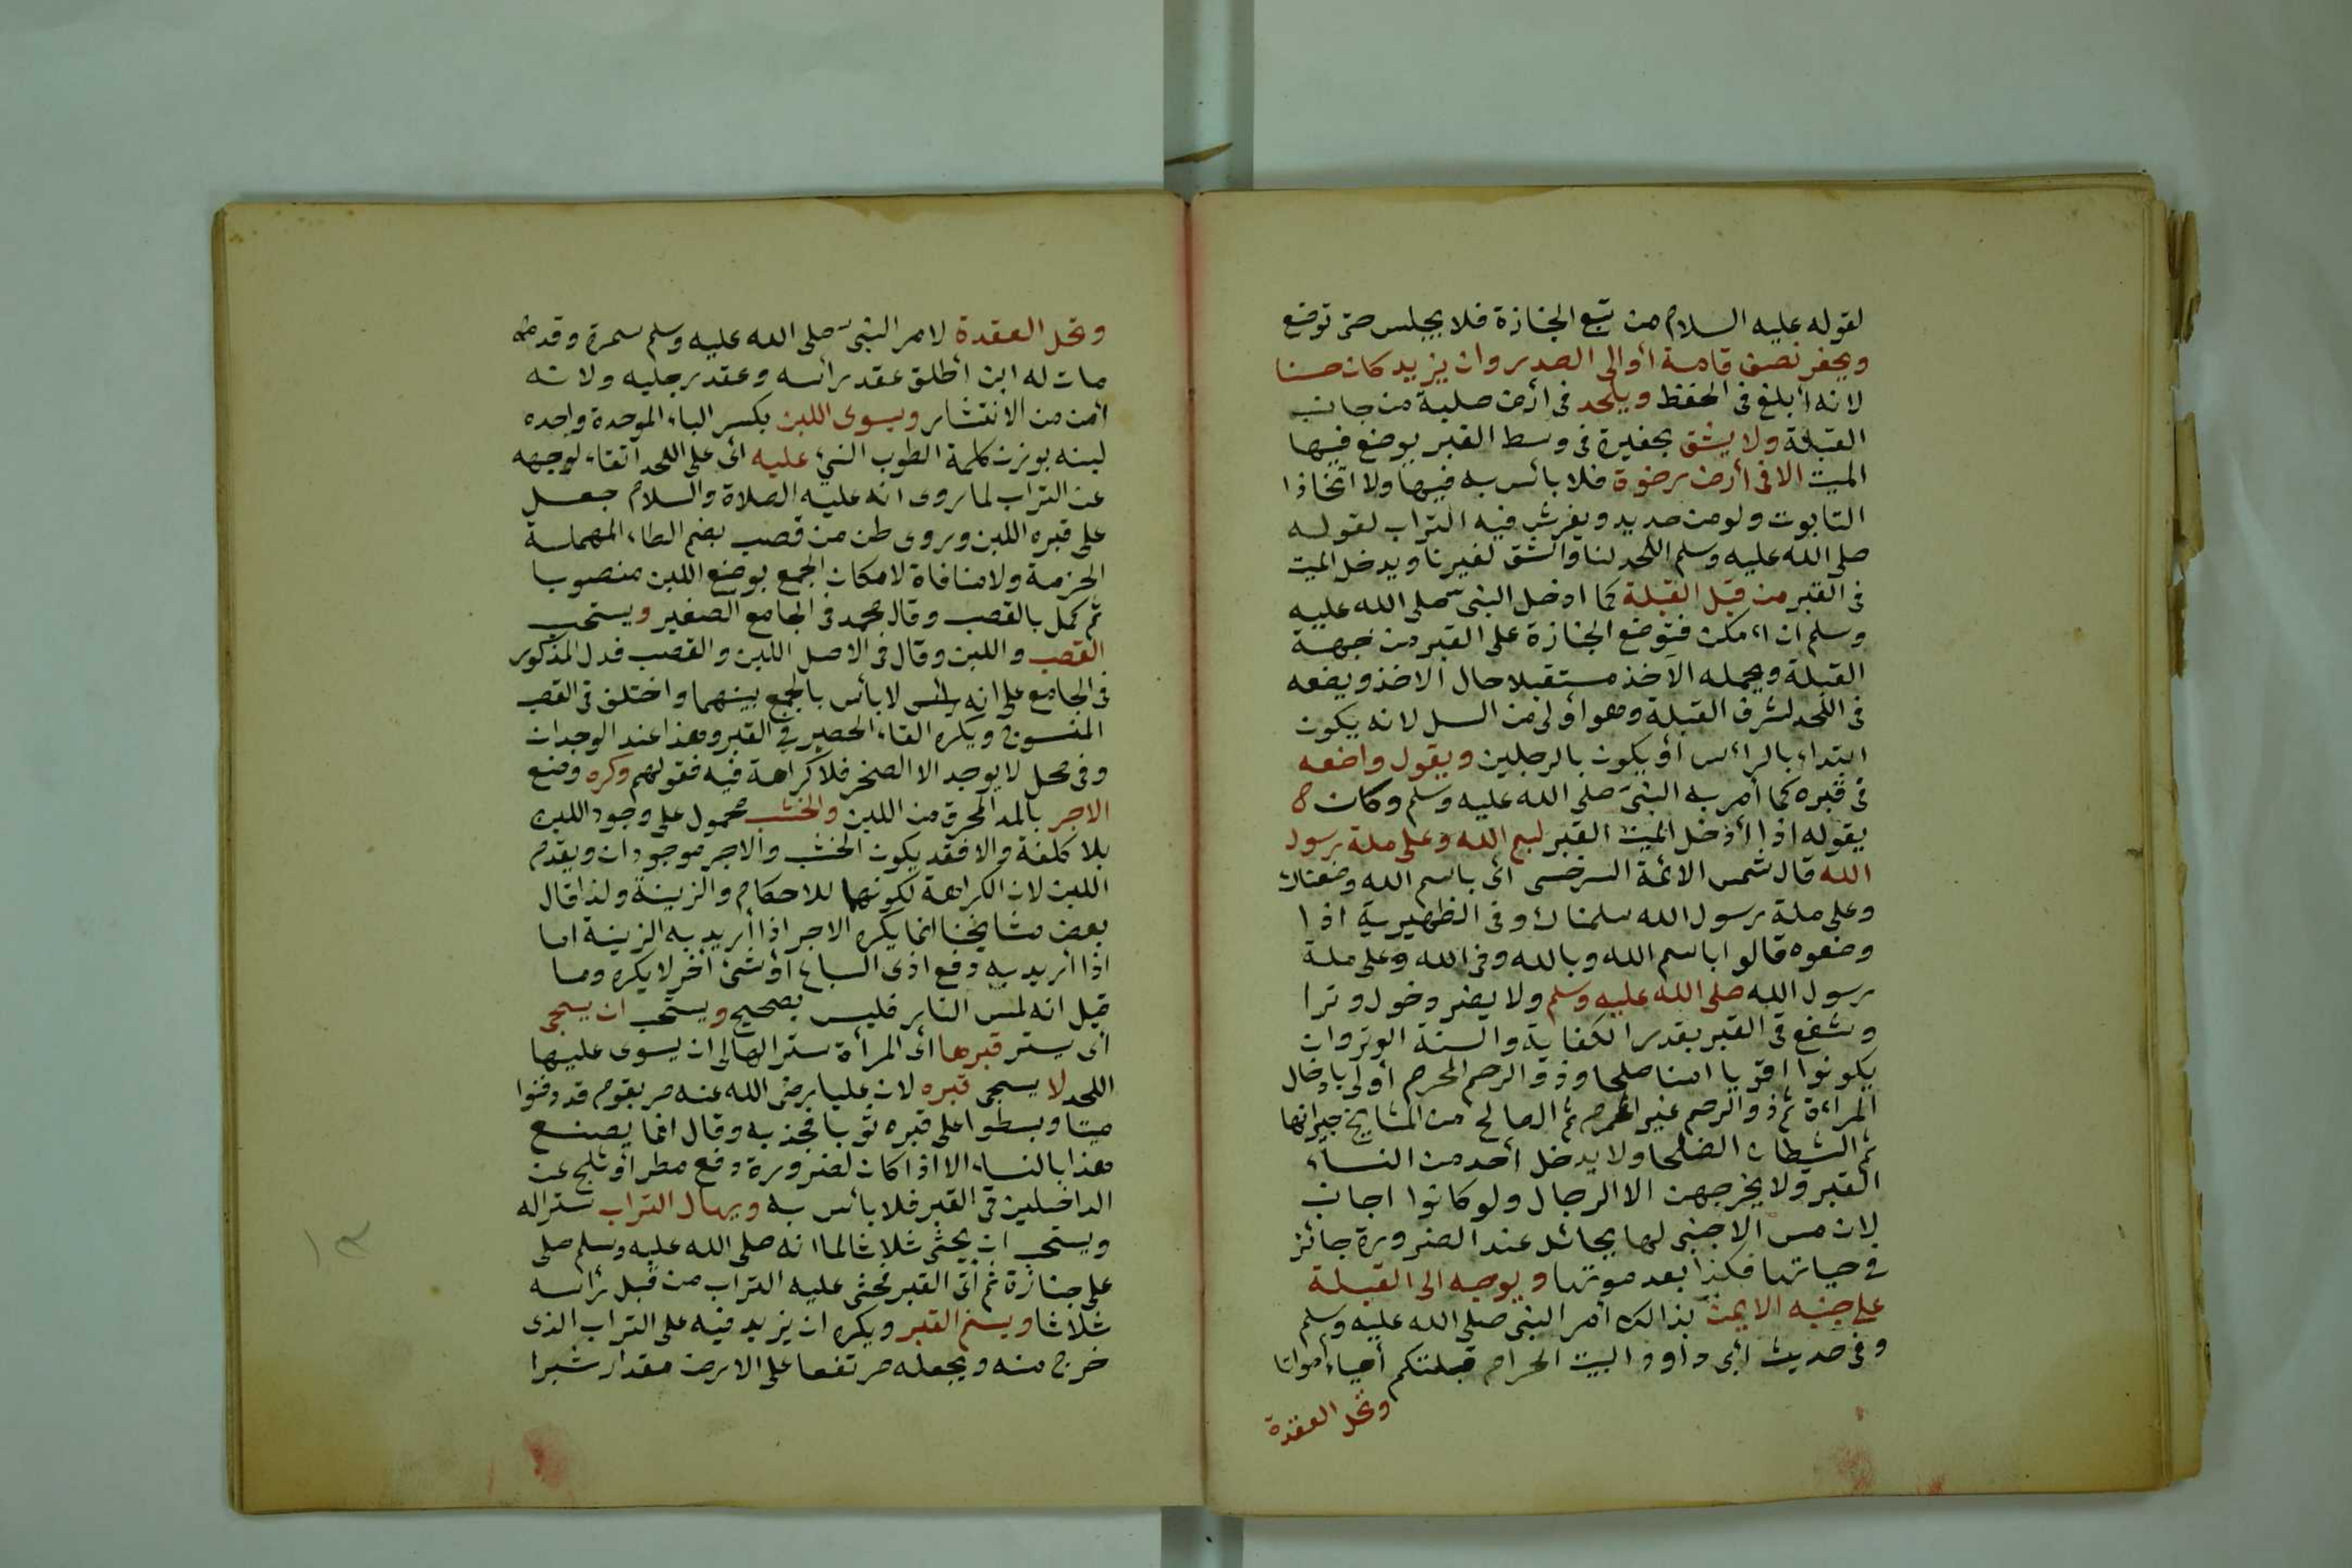 لقوله عليه السلام من تبع الجنازة فلا يجلس حتى توضع
ويحفر نصف قامة أو الى الصدر وان يزيد كان حسنا
لانه أبلغ فى الحفظ ويلحد فى أرض صلبة من جانب
القبلة ولا يشق بحفيرة فى وسط القبر يوضع فيها
الميت الا فى أرض رخوة فلا بأس به فيها ولا اتخاذا
التابوت ولو من حديد ويفرش فيه التراب لقوله
صلى الله عليه وسلم اللحد لنا والشق لغيرنا ويدخل الميت
فى القبر من قبل القبلة كما ادخل النبى صلى الله عليه
وسلم ان امكن فتوضع الجنازة على القبر من جهة
القبلة ويحمله الآخذ مستقبلا حال الاخذ ويضعه
فى اللحد لشرف القبلة وهو أولى من السل لانه يكون
ابتداء بالرأس أو يكون بالرجلين ويقول واضعه
فى قبره كما أمر به النبى صلى الله عليه وسلم وكان
يقوله اذا أدخل الميت القبر بسم الله وعلى ملة رسول
الله قال شمس الائمة السرخسى أى باسم الله وضعناك
وعلى ملة رسول الله سلمناك وفى الظهيرية اذا
وضعوه قالوا باسم الله وبالله وفى الله وعلى ملة
رسول الله صلى الله عليه وسلم ولا يضر دخول وترا
وشفع فى القبر بقدر الكفاية والسنة الوتر وان
يكونوا اقويا امنا صلحا وذو الرحم المحرم أولى بادخال
المراءة ثم ذو الرحم غير المحرم ثم الصالح من المشايخ جيرانها
ثم الشبان الصلحا ولا يدخل أحد من النساء
القبر ولا يخرجهن الا الرجال ولو كانوا اجانب
لان مس الاجنبى لها بحائل عند الضرورة جائز
فى حياتها فكذا بعد موتها ويوجه الى القبلة
على جنبه الايمن بذالك أمر النبى صلى الله عليه وسلم
وفى حديث أبى داود البيت الحرام قبلتكم أحياء أمواتا
وتحل العقدة
وتحل العقدة لامر النبى صلى الله عليه وسلم سمرة وقد
مات له ابن أطلق عقد رأسه وعقد رجليه ولانه
أمن من الانتشار ويسوى اللبن بكسر الباء الموحدة واحده
لبنه بوزن كلمة الطوب النىء عليه أى على اللحد اتقاء لوجهه
عن التراب لما روى انه عليه الصلاة والسلام جعل
على قبره اللبن وروى طن من قصب بضم الطاء المهملة
الحزمة ولا منافاة لامكان الجمع بوضع اللبن منصوبا
ثم كمل بالقصب وقال محمد فى الجامع الصغير ويستحب
القصب واللبن وقال فى الاصل اللبن والقصب فدل المذكور
فى الجامع على انه لا بأس بالجمع بينهما واختلف فى القصب
المنسوج ويكره القاء الحصير فى القبر وهذا عند الوجدان
وفى محل لا يوجد الا الصخر فلا كراهة فيه فقولهم وكره وضع
الاجر بالمد المحرق من اللبن والخشب محمول على وجود اللبن
بلا كلفة والا فقد يكون الخشب والاجر موجودان ويقدم
اللبن لان الكراهة لكونها للاحكام والزينة ولذا قال
بعض مشايخنا انما يكره الاجر اذا أريد به الزينة اما
اذا أريد به دفع اذى السباع أو شئ آخر لا يكره وما
قيل انه لمس النار فليس بصحيح ويستحب ان يسجى
أى يستر قبرها أى المرأة سترا لها الى ان يسوى عليها
اللحد لا يسجى قبره لان عليا رضى الله عنه مر بقوم قد دفنوا
ميتا وبسطوا على قبره ثوبا فجذبه وقال انما يصنع
هذا بالنساء الا اذا كان لضرورة دفع مطر أو ثلج عن
الداخلين فى القبر فلا بأس به ويهال التراب سترا له
ويستحب ان يحثى ثلاثا لما انه صلى الله عليه وسلم صلى
على جنازة ثم أتى القبر فحثى عليه التراب من قبل رأسه
ثلاثا ويسنم القبر ويكره ان يزيد فيه على التراب الذى
خرج منه ويجعله مرتفعا على الارض مقدار شبرا